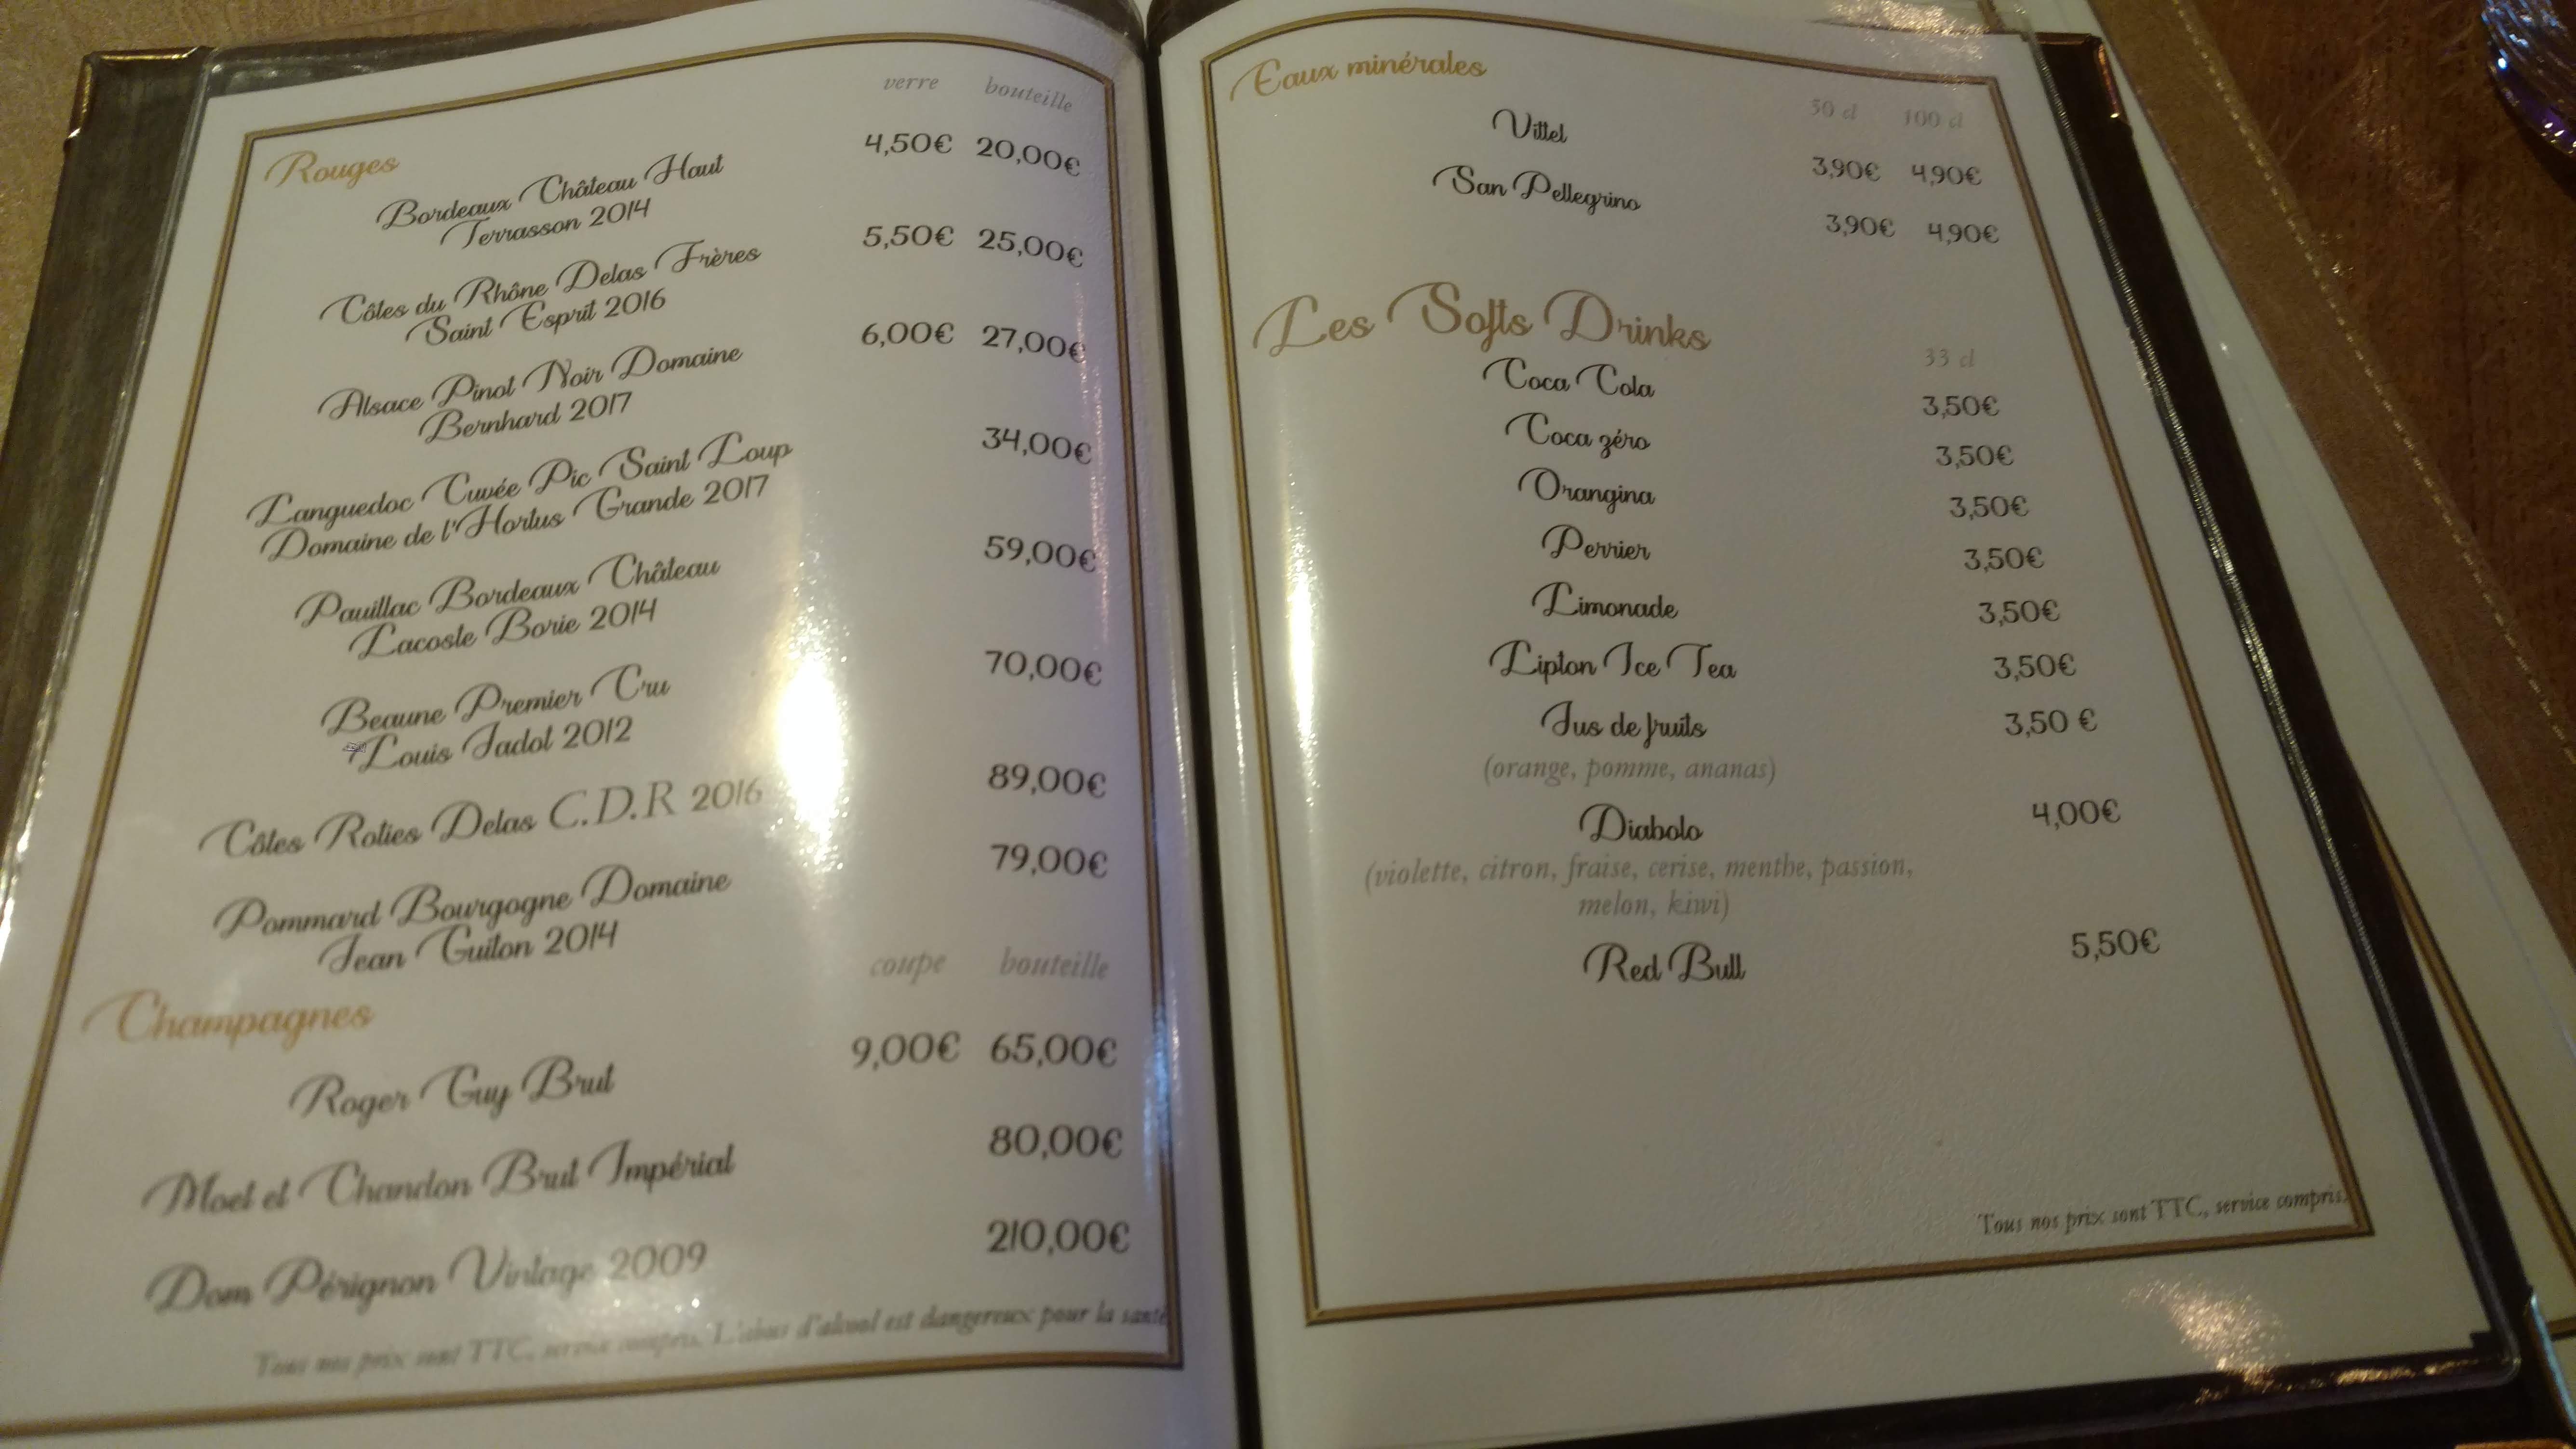 verre bouteille
Rouges
Bordeaux Château Haut 4,50€ 20,00€
Terrasson 2014
Côtes du Rhône Delas Frères 5,50€ 25,00€
Saint Esprit 2016
Alsace Pinot Noir Domaine 6,00€ 27,00€
Bernhard 2017
Languedoc Cuvée Pic Saint Loup 34,00€
Domaine de l'Hortus Grande 2017
Pauillac Bordeaux Château 59,00€
Lacoste Borie 2014
Beaune Premier Cru 70,00€
Louis Jadot 2012
Côtes Roties Delas C.D.R 2016 89,00€
Pommard Bourgogne Domaine 79,00€
Jean Guiton 2014
coupe bouteille
Champagnes
Roger Guy Brut 9,00€ 65,00€
Moet et Chandon Brut Impérial 80,00€
Dom Pérignon Vintage 2009 210,00€
Tous nos prix sont TTC, service compris. L'abus d'alcool est dangereux pour la santé
Eaux minérales
50 cl 100 cl
Vittel 3,90€ 4,90€
San Pellegrino 3,90€ 4,90€
Les Softs Drinks
33 cl
Coca Cola 3,50€
Coca zéro 3,50€
Orangina 3,50€
Perrier 3,50€
Limonade 3,50€
Lipton Ice Tea 3,50€
Jus de fruits 3,50 €
(orange, pomme, ananas)
Diabolo 4,00€
(violette, citron, fraise, cerise, menthe, passion,
melon, kiwi)
Red Bull 5,50€
Tous nos prix sont TTC, service compris.